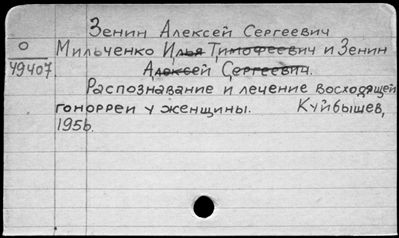 Зенин Алексей Сергеевич
О
49407
Мильченко Илья Тимофеевич и Зенин
Алексей Сергеевич.
Распознавание и лечение восходящей
гонорреи у женщины. Куйбышев,
1956.